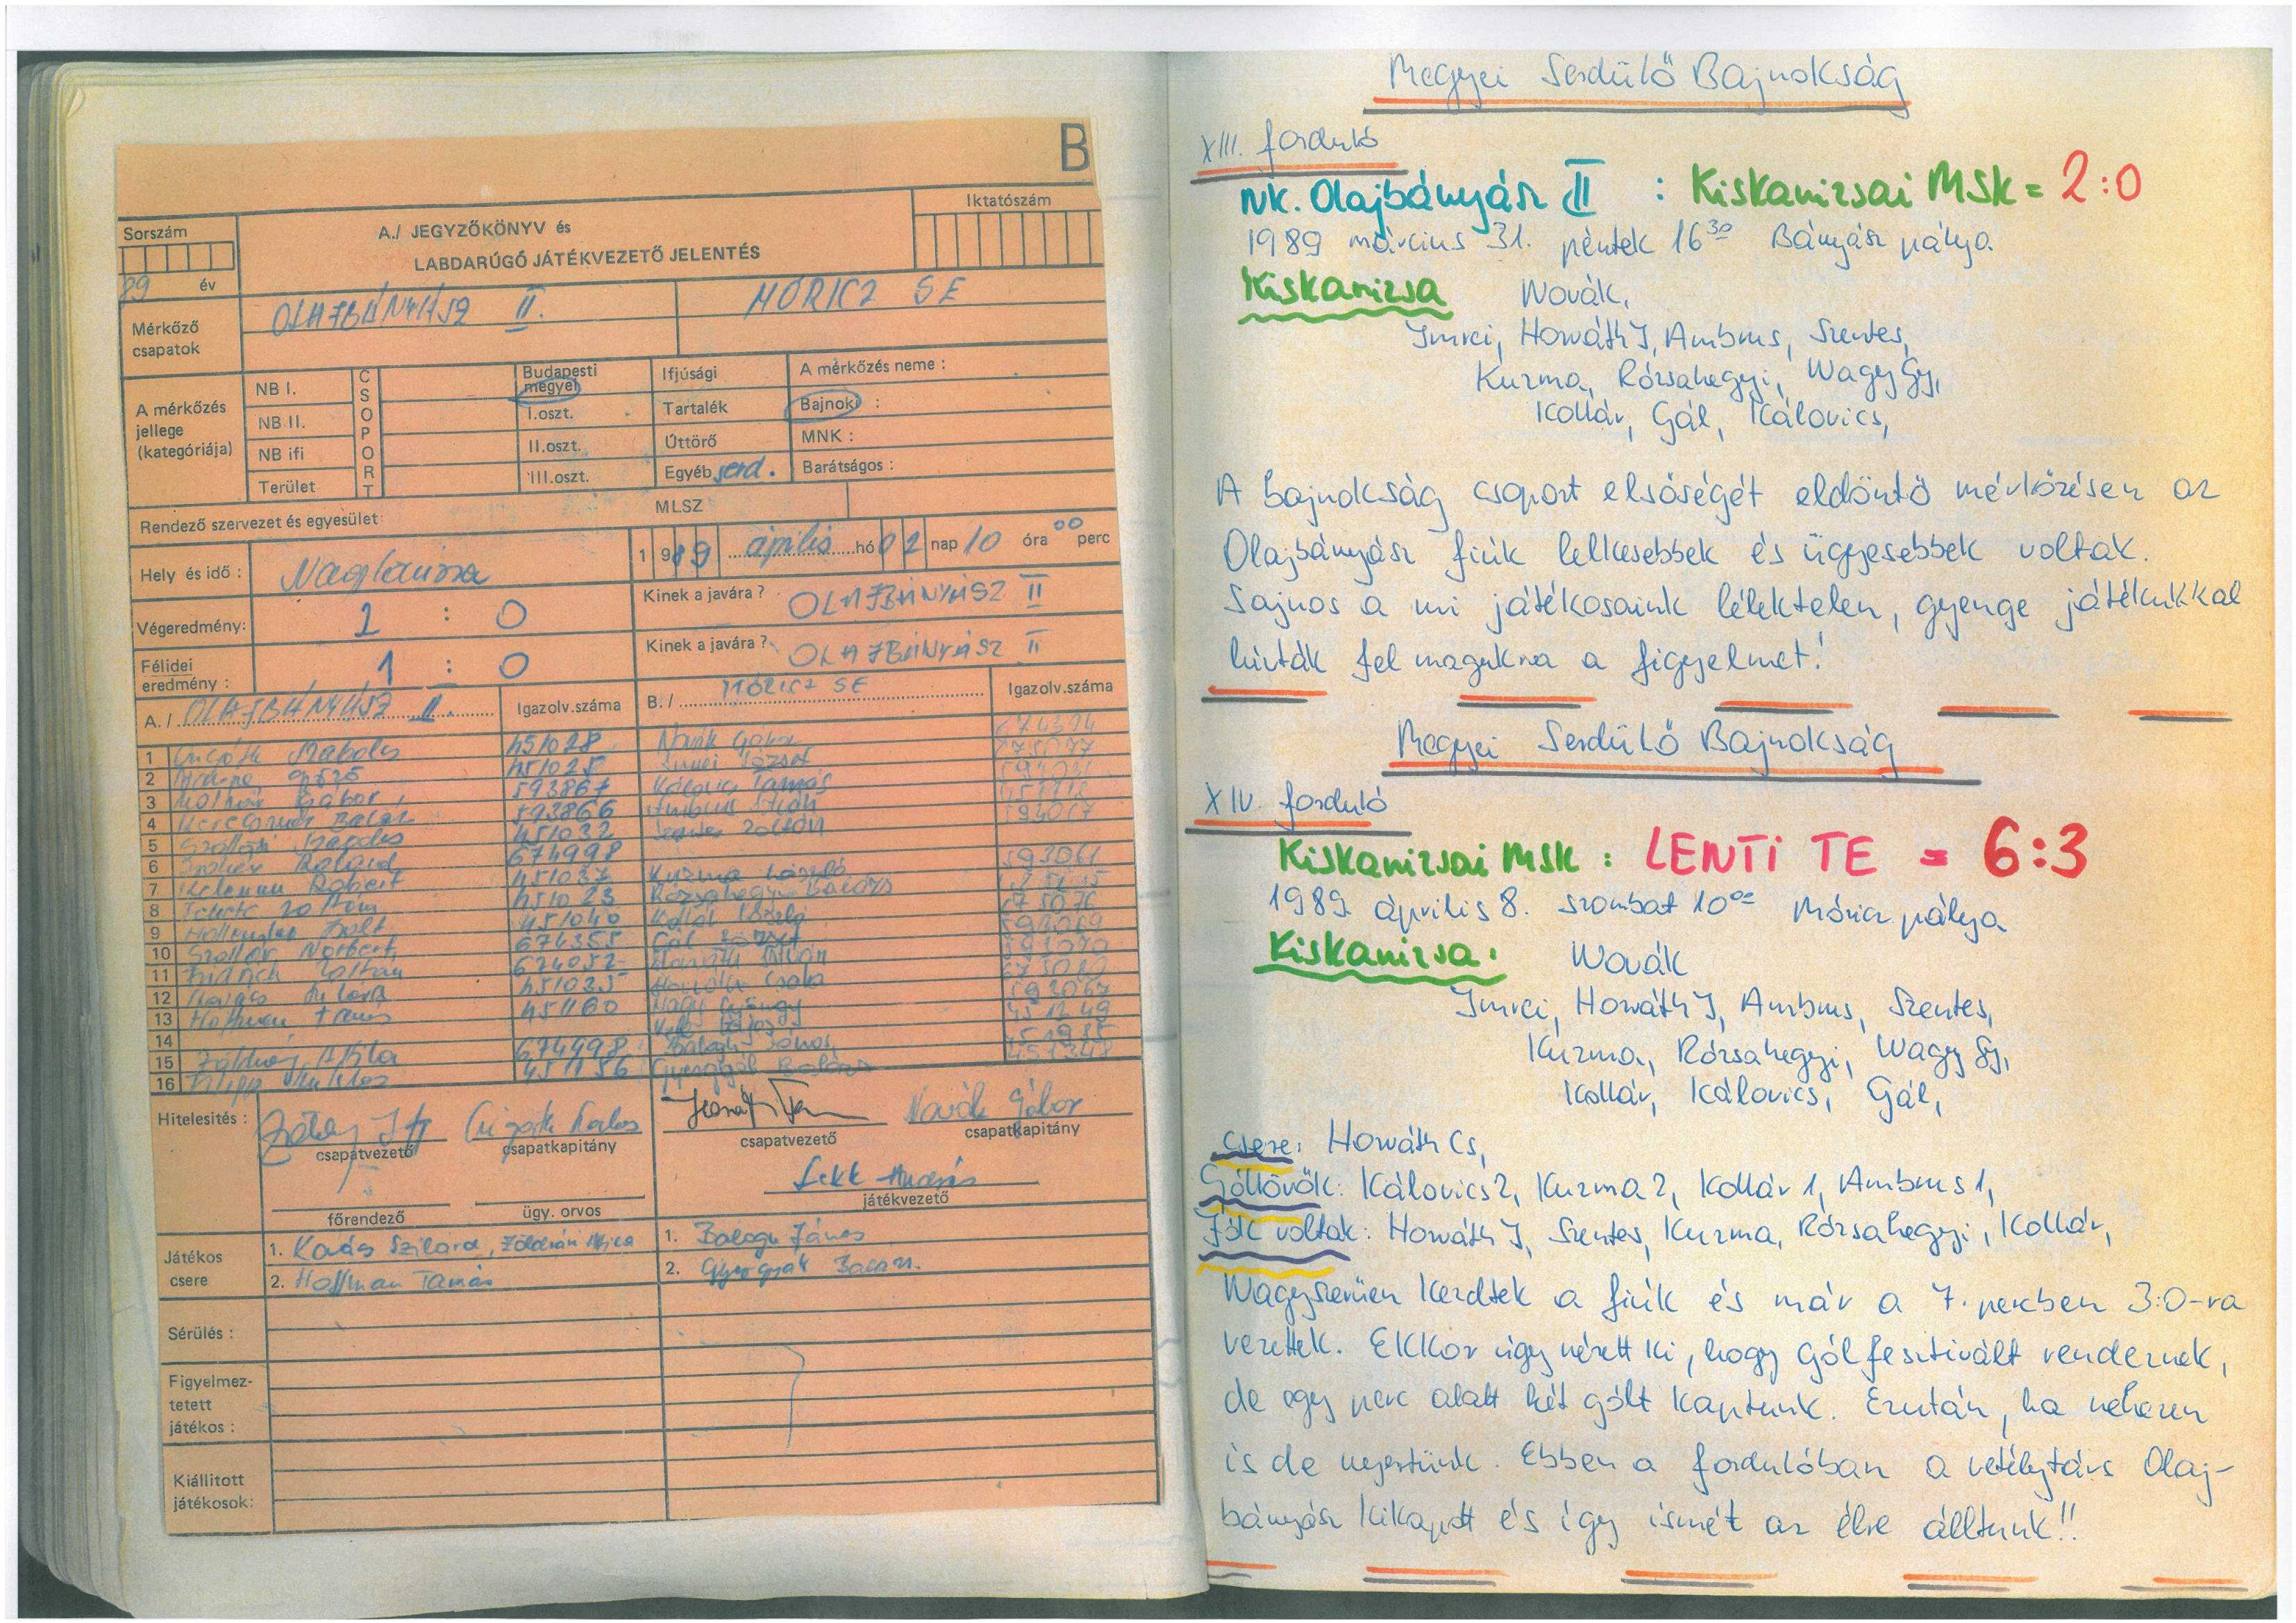 B
Iktatószám
Sorszám
A./ JEGYZŐKÖNYV és
LABDARÚGÓ JÁTÉKVEZETŐ JELENTÉS
89 év
Mérkőző
csapatok
OLAJBÁNYÁSZ II.
MÓRICZ SE
A mérkőzés
jellege
(kategóriája)
NB I.
NB II.
NB ifi
Terület
CSOPORT
Budapesti
megyei
I.oszt.
II.oszt.
III.oszt.
Ifjúsági
Tartalék
Úttörő
Egyéb serd.
A mérkőzés neme :
Bajnoki :
MNK :
Barátságos :
Rendező szervezet és egyesület:
MLSZ
Hely és idő : Nagykanizsa
1989 április hó 02 nap 10 óra 00 perc
Végeredmény: 2 : 0
Kinek a javára ? OLAJBÁNYÁSZ II
Félidei
eredmény : 1 : 0
Kinek a javára ? OLAJBÁNYÁSZ II
A./ OLAJBÁNYÁSZ II. Igazolv.száma
B./ MÓRICZ SE Igazolv.száma
1 Szabolcs 451028 Novák Gábor
2 451025 Imrei József
3 Molnár Gábor 593867 Kálovics Tamás
4 593866 Ambrus
5 451032 Szentes Zoltán
6 Roland 674998
7 Kelemen Róbert 451037 Kuzma László
8 Zoltán 451023 Rózsahegyi Balázs
9 Zsolt 451040 Kollár László
10 Norbert 674355 Gál József
11 Zoltán Horváth István
12 451035 Horváth Csaba
13 Hoffman Tamás 451160 Nagy György
14
15 Attila 674498 Balogh János
16 451156 Gyergyák Balázs
Hitelesítés :
csapatvezető
csapatkapitány
csapatvezető
Novák Gábor
csapatkapitány
Lekk András
játékvezető
főrendező
ügy. orvos
Játékos
csere
1. Kovács Szilárd,
2. Hoffman Tamás
1. Balogh János
2. Gyergyák Balázs.
Sérülés :
Figyelmez-
tetett
játékos :
Kiállított
játékosok:
Megyei Serdülő Bajnokság
XIII. forduló
NK. Olajbányász II : Kiskanizsai MSK = 2:0
1989 március 31. péntek 16 30 Bányász pálya
Kiskanizsa Novák,
Imrei, Horváth I, Ambrus, Szentes,
Kuzma, Rózsahegyi, Nagy Gy,
Kollár, Gál, Kálovics,
A bajnokság csoport elsőségét eldöntő mérkőzésen az
Olajbányász fiúk lelkesebbek és ügyesebbek voltak.
Sajnos a mi játékosaink lélektelen, gyenge játékukkal
hívták fel magukra a figyelmet!
Megyei Serdülő Bajnokság
XIV. forduló
Kiskanizsai MSK : LENTI TE = 6:3
1989. április 8. szombat 10 00 Móricz pálya
Kiskanizsa: Novák
Imrei, Horváth I, Ambrus, Szentes,
Kuzma, Rózsahegyi, Nagy Gy,
Kollár, Kálovics, Gál,
Csere: Horváth Cs,
Góllövők: Kálovics 2, Kuzma 2, Kollár 1, Ambrus 1,
Jók voltak: Horváth I, Szentes, Kuzma, Rózsahegyi, Kollár,
Nagyszerűen kezdtek a fiúk és már a 7. percben 3:0-ra
vezettek. Ekkor úgy nézett ki, hogy gólfesztivált rendeznek,
de egy perc alatt két gólt kaptunk. Ezután, ha nehezen
is de nyertünk. Ebben a fordulóban a vetélytárs Olaj-
bányász kikapott és így ismét az élre álltunk!!